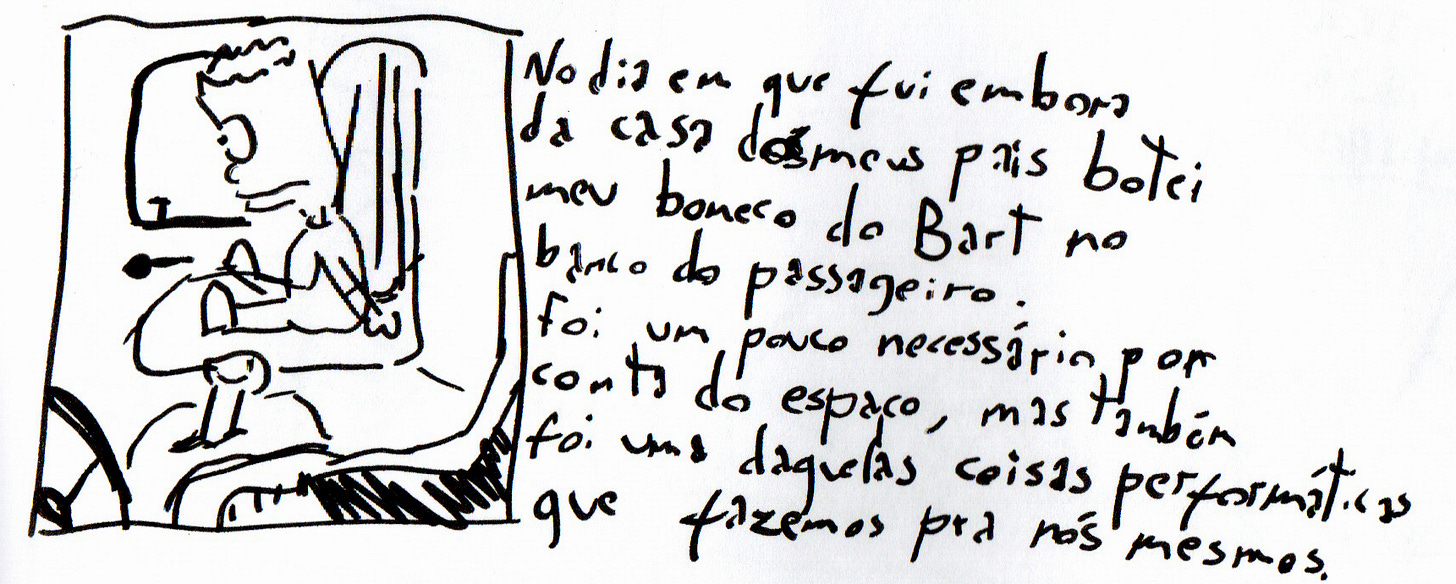 No dia em que fui embora
da casa dos meus pais botei
meu boneco do Bart no
banco do passageiro.
foi um pouco necessário por
conta do espaço, mas também
foi uma daquelas coisas performáticas
que fazemos pra nós mesmos.